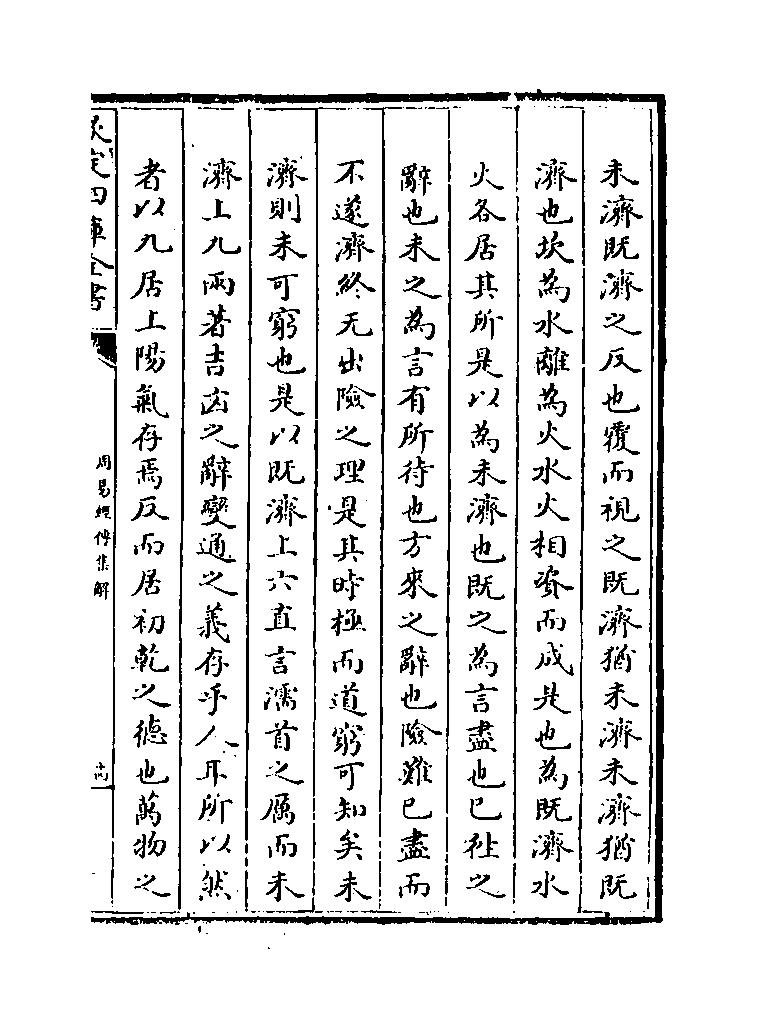 未濟既濟之反也覆而視之既濟猶未濟未濟猶既
濟也坎為水離為火水火相資而成是也為既濟水
火各居其所是以為未濟也既之為言盡也已往之
辭也未之為言有所待也方來之辭也險難已盡而
不遂濟終无出險之理是其時極而道窮可知矣未
濟則未可窮也是以既濟上六直言濡首之厲而未
濟上九兩著吉凶之辭變通之義存乎人耳所以然
者以九居上陽氣存焉反而居初乾之德也萬物之
欽定四庫全書
周易經傳集解